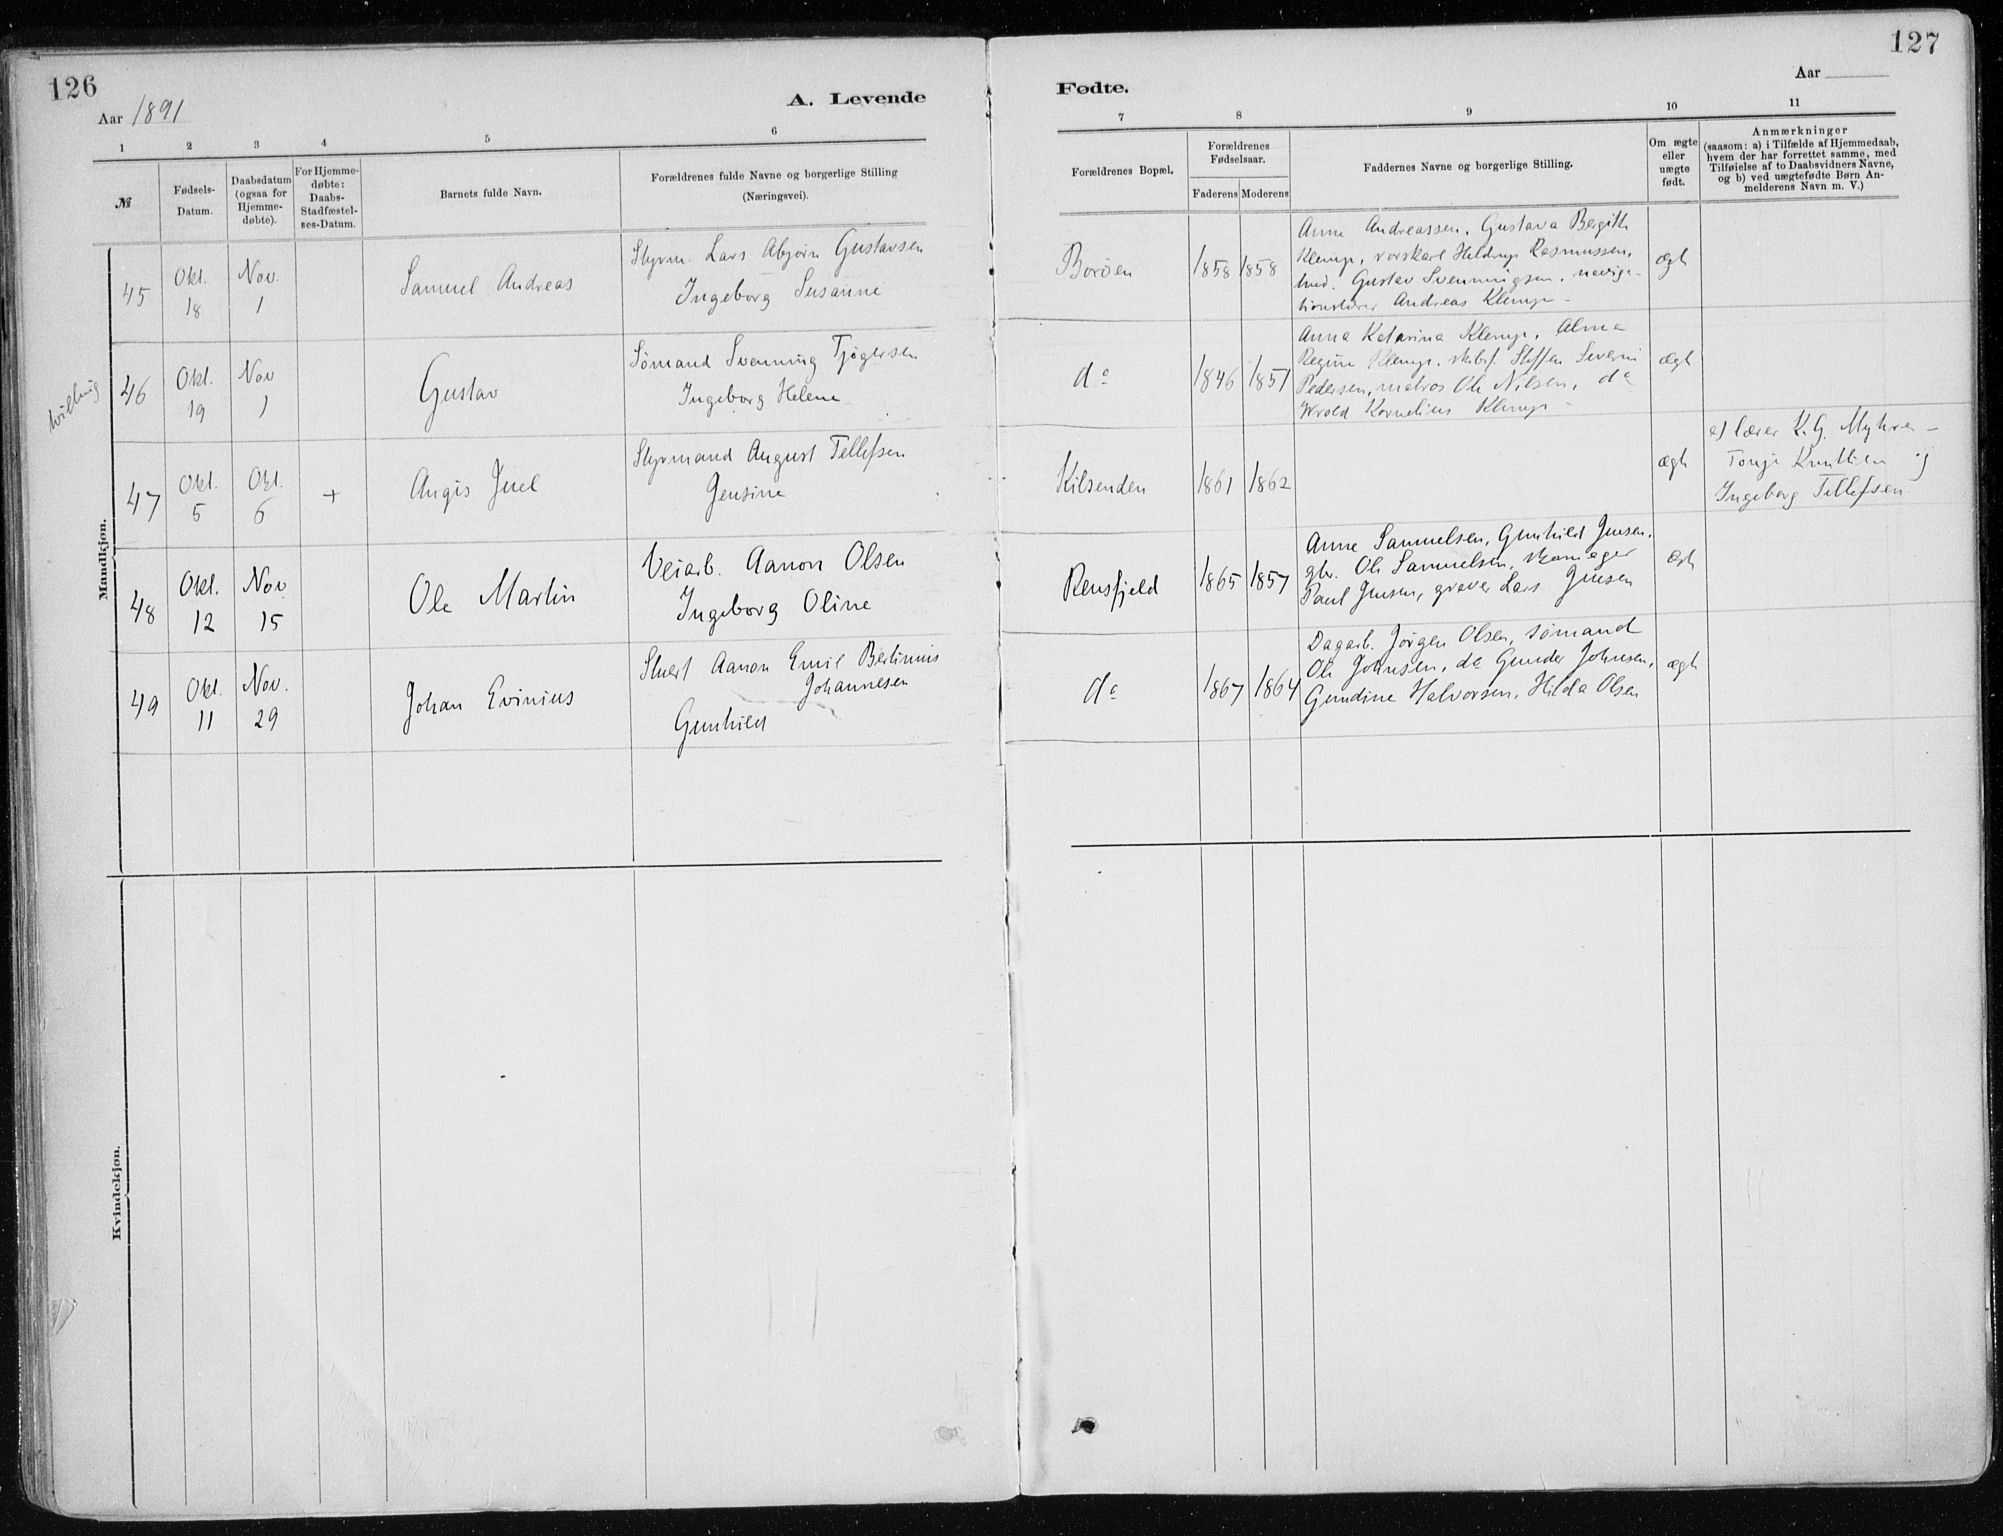 126
Aar 1891
A. Levende
1 2 3 4 5 6
№
Fødsels-
Datum.
Daabsdatum
(ogsaa for
Hjemme-
døbte).
For Hjemme-
døbte:
Daabs-
Stadfæstel-
ses-Datum.
Barnets fulde Navn.
Forældrenes fulde Navne og borgerlige Stilling
(Næringsvei).
Mandkjøn.
45
Okt.
18
Nov.
1
Samuel Andreas
Styrm. Lars Abjørn Gustavsen
Ingeborg Susanne
tvilling
46
Okt.
19
Nov
1
Gustav
Sømand Svenning Tjøgersen
Ingeborg Helene
47
Okt.
5
Okt.
6
+
Angis Juel
Styrmand August Tellefsen
Jensine
48
Okt.
12
Nov
15
Ole Martin
Veiarb. Aanon Olsen
Ingeborg Oline
49
Okt.
11
Nov.
29
Johan Evinius
Stuert Aanon Emil Bertinius
Johannesen
Gunhild
Kvindekjøn.
127
Aar
Fødte.
7 8 9 10 11
Forældrenes Bopæl.
Forældrenes
Fødselsaar.
Faderens Moderens
Faddernes Navne og borgerlige Stilling.
Om ægte
eller
uægte
født.
Anmærkninger
(saasom: a) i Tilfælde af Hjemmedaab,
hvem der har forrettet samme, med
Tilføielse af to Daabsvidners Navne,
og b) ved uægtefødte Børn An-
melderens Navn m. V.)
Borøen
1858 1858
Anne Andreassen, Gustava Bergith
Klemp, Rasmussen,
Gustav Svenningsen, naviga-
tionslærer Andreas Klemp
ægt
do
1846 1851
Anna Katarina Klemp, Alma
Regine Klemp, skibsf. Steffen Severin
Pedersen, matros Ole Nilsen, do
Kornelius Klemp
ægt
Kilsenden
1861 1862
ægt
a) lærer K. G. Myhre
Knutsen og
Ingeborg Tellefsen
Rensfjeld
1865 1857
Anne Samuelsen, Gunhild Jensen,
gbr. Ole Samuelsen, skomager
Paul Jensen, graver Lars Jensen
ægt
do
1867 1864
Dagarb. Jørgen Olsen, sømand
Ole Johnsen, do Gunder Johnsen,
Gundine Halvorsen, Hilda Olsen
ægt